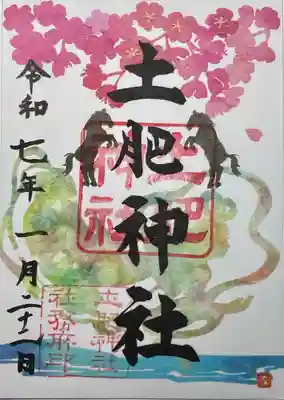 土肥神社
令和七年一月二十一日
土肥
神社
土肥神社
社務所印